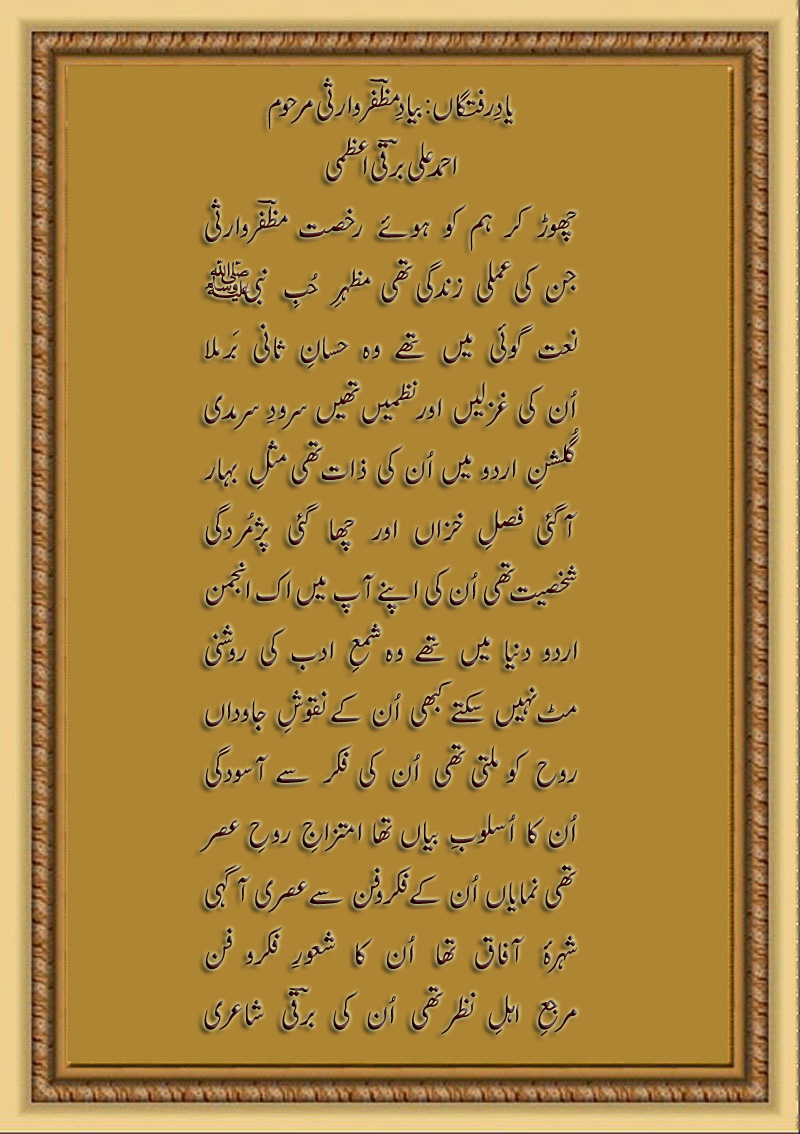 یادِ رفتگاں: بیادِ مظفر وارثی مرحوم
احمد علی برقیؔ اعظمی
چھوڑ کر ہم کو ہوئے رخصت مظفرؔ وارثی
جن کی عملی زندگی تھی مظہرِ حُبِ نبیﷺ
نعت گوئی میں تھے وہ حسانِ ثانی بَرملا
اُن کی غزلیں اور نظمیں تھیں سرودِ سرمدی
گُلشنِ اردو میں اُن کی ذات تھی مثلِ بہار
آ گئی فصلِ خزاں اور چھا گئی پژمُردگی
شخصیت تھی اُن کی اپنے آپ میں اک انجمن
اردو دنیا میں تھے وہ شمعِ ادب کی روشنی
مٹ نہیں سکتے کبھی اُن کے نقوشِ جاوداں
روح کو ملتی تھی اُن کی فکر سے آسودگی
اُن کا اُسلوبِ بیاں تھا امتزاجِ روحِ عصر
تھی نمایاں اُن کے فکروفن سے عصری آگہی
شہرۂ آفاق تھا اُن کا شعورِ فکرو فن
مرجعِ اہلِ نظر تھی اُن کی برقیؔ شاعری